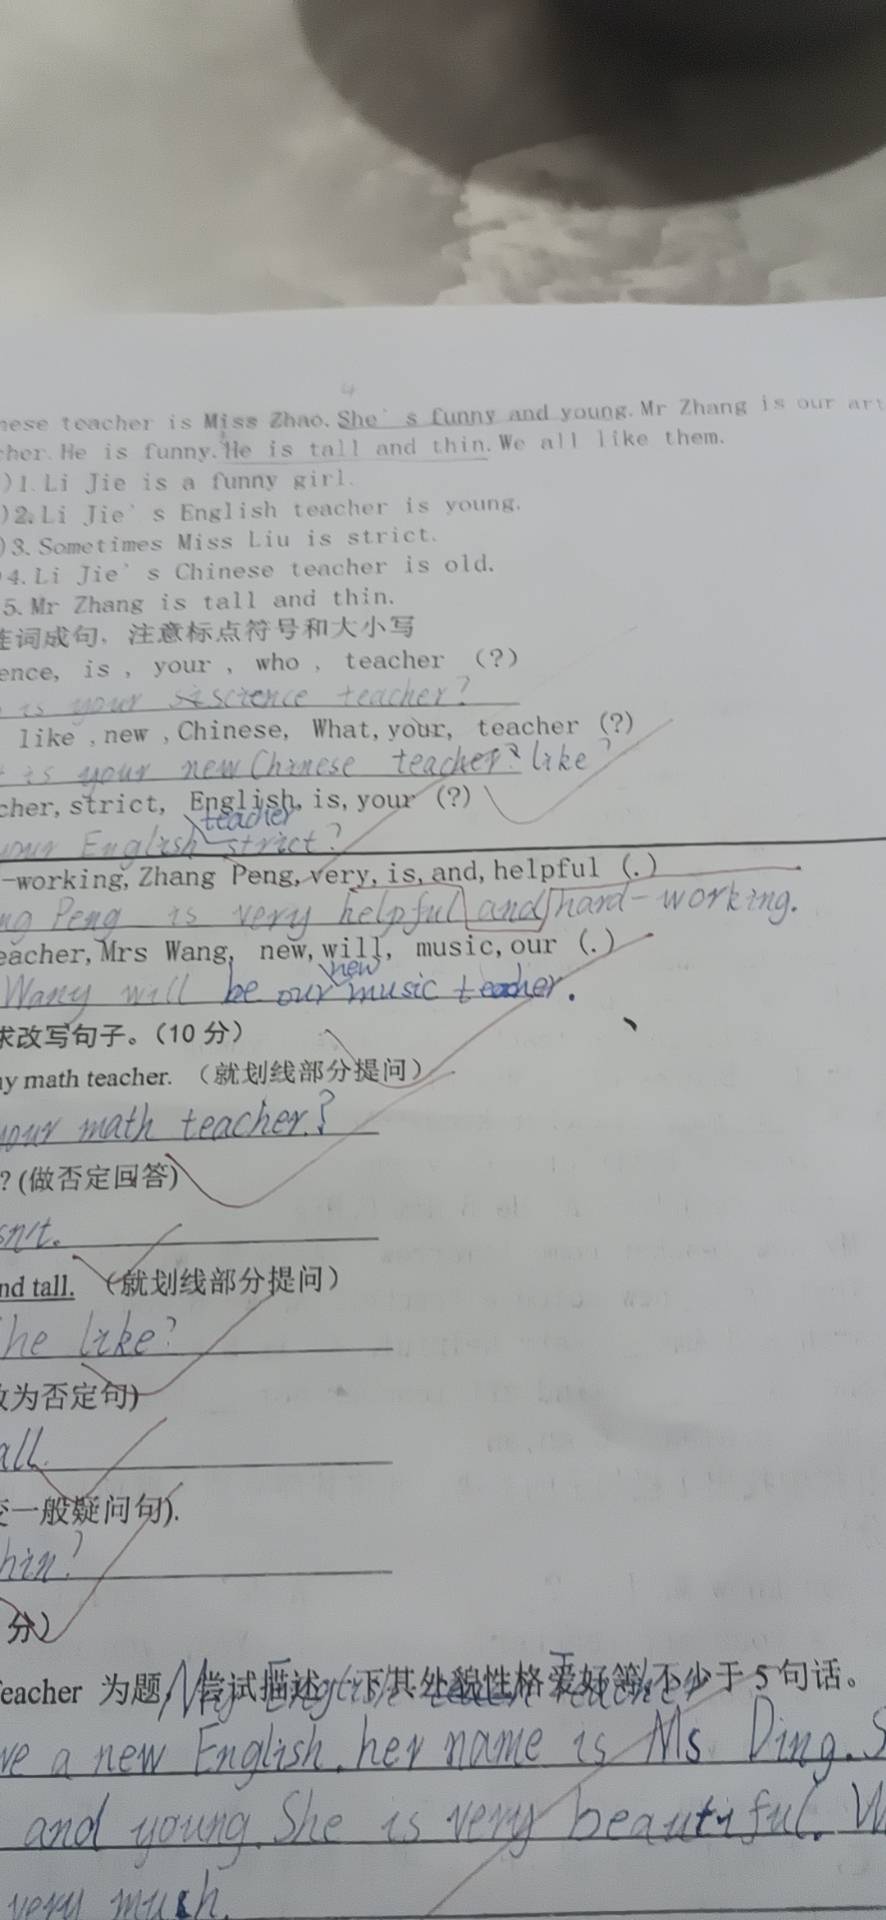 nese teacher is Miss Zhao. She's funny and young. Mr Zhang is our art
cher. He is funny. He is tall and thin. We all like them.
)1. Li Jie is a funny girl.
)2. Li Jie's English teacher is young.
)3. Sometimes Miss Liu is strict.
4. Li Jie's Chinese teacher is old.
5. Mr Zhang is tall and thin.
连词成句，注意标点符号和大小写
ence, is , your , who , teacher （?）
is your science teacher?
like ,new ,Chinese, What, your, teacher (?)
is your new Chinese teacher? like?
cher, strict, English, is, your (?)
teacher
your English strict?
-working, Zhang Peng, very, is, and, helpful (.)
ng Peng is very helpful and hard-working.
eacher, Mrs Wang, new, will, music, our (.)
new
Wang will be our music teacher.
求改写句子。（10 分）
my math teacher. （就划线部分提问）
your math teacher?
? (做否定回答)
sn't.
nd tall. （就划线部分提问）
he like?
改为否定句)
all.
变一般疑问句).
hin?
分）
eacher 为题，尝试描述一下其外貌性格爱好等，不少于 5 句话。
My English Teacher
ve a new English. her name is Ms Ding. S
and young. She is very beautiful. W
very much.